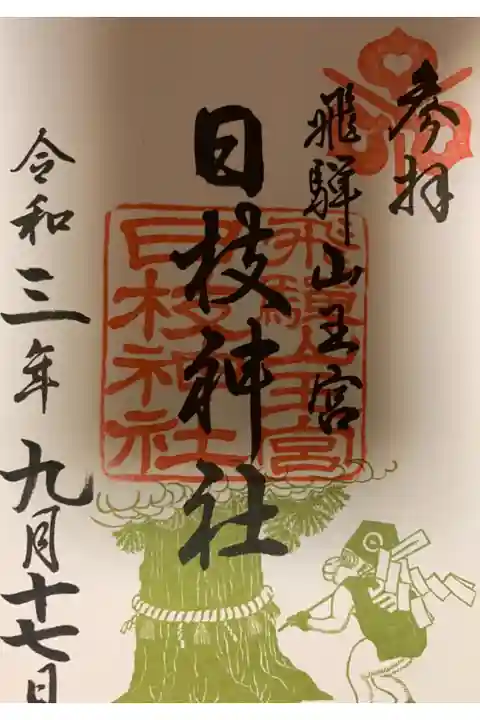 参拝
飛騨山王宮
日枝神社
令和三年九月十七日
飛騨山王宮
日枝神社